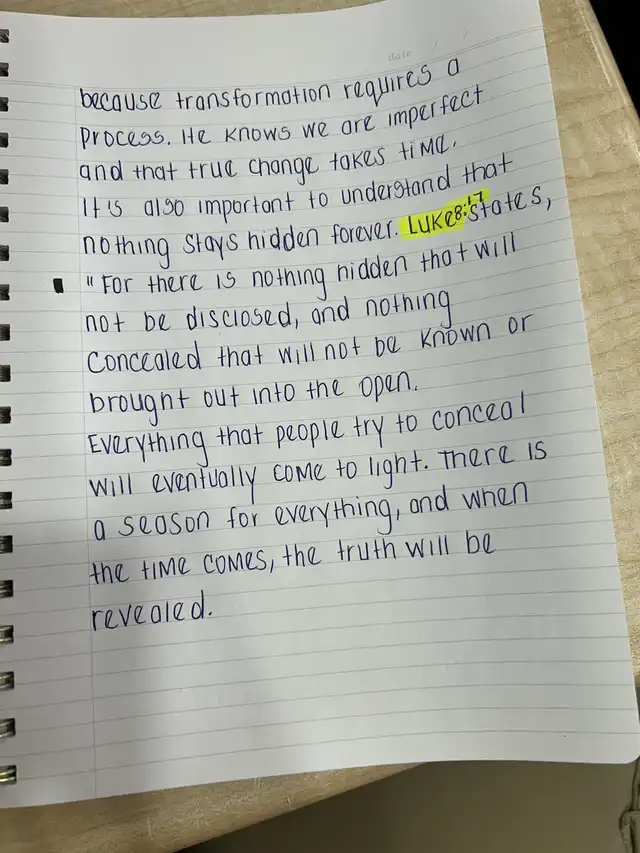 date / /
because transformation requires a
process. He knows we are imperfect
and that true change takes time.
It is also important to understand that
nothing stays hidden forever. Luke 8:17 states,
"For there is nothing hidden that will
not be disclosed, and nothing
concealed that will not be known or
brought out into the open.
Everything that people try to conceal
will eventually come to light. There is
a season for everything, and when
the time comes, the truth will be
revealed.